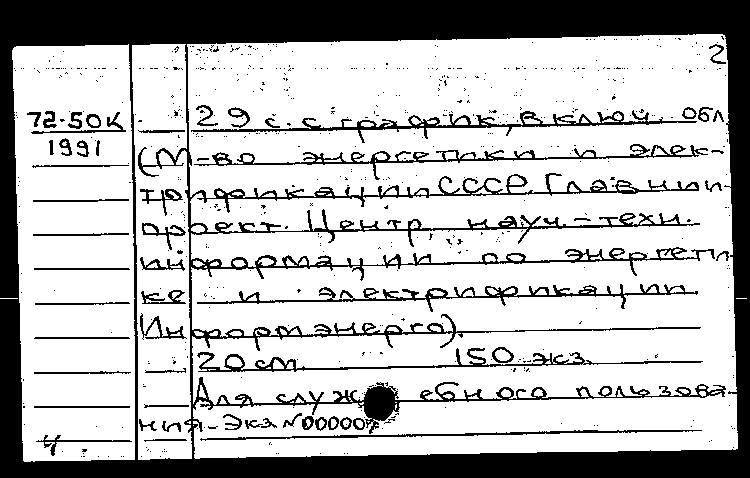 2
72-50К
1991
29 с. с график, включ. обл
(М-во энергетики и элек-
трификации СССР. Главнии-
проект. Центр. науч.-техн.
информации по энергети-
ке и электрификации
Информэнерго).
20 см. 150 экз.
Для служебного пользова-
ния. Экз №000007
4